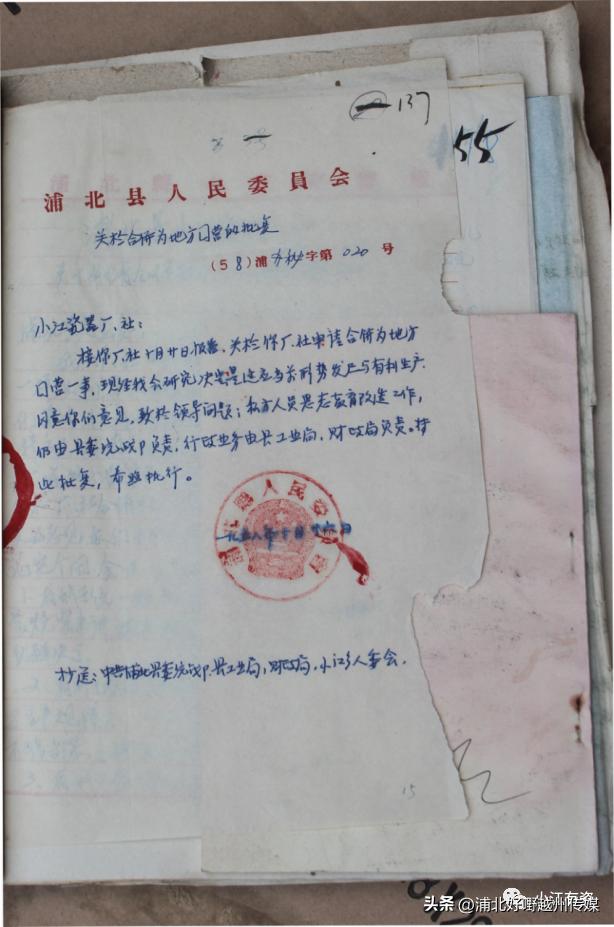 137
55
浦北县人民委員会
关於合併为地方国营的批复
(58)浦办秘字第020号
小江瓷器厂、社：
接你厂社十月廿日报告，关於你厂、社申请合併为地方
国营一事，现经我会研究决定是适应当前形势发展与有利生产，
同意你们意见，致於领导问题；私方人员思想教育改造工作，
仍由县委统战卩负责，行政业务由县工业局，财政局负责。特
此批复，希照执行。
浦北县人民委員会
一九五八年十月廿六日
抄送：中共浦北县委统战卩，县工业局，财政局，小江乡人委会．
15
小江有瓷
头条@浦北好野越州传媒